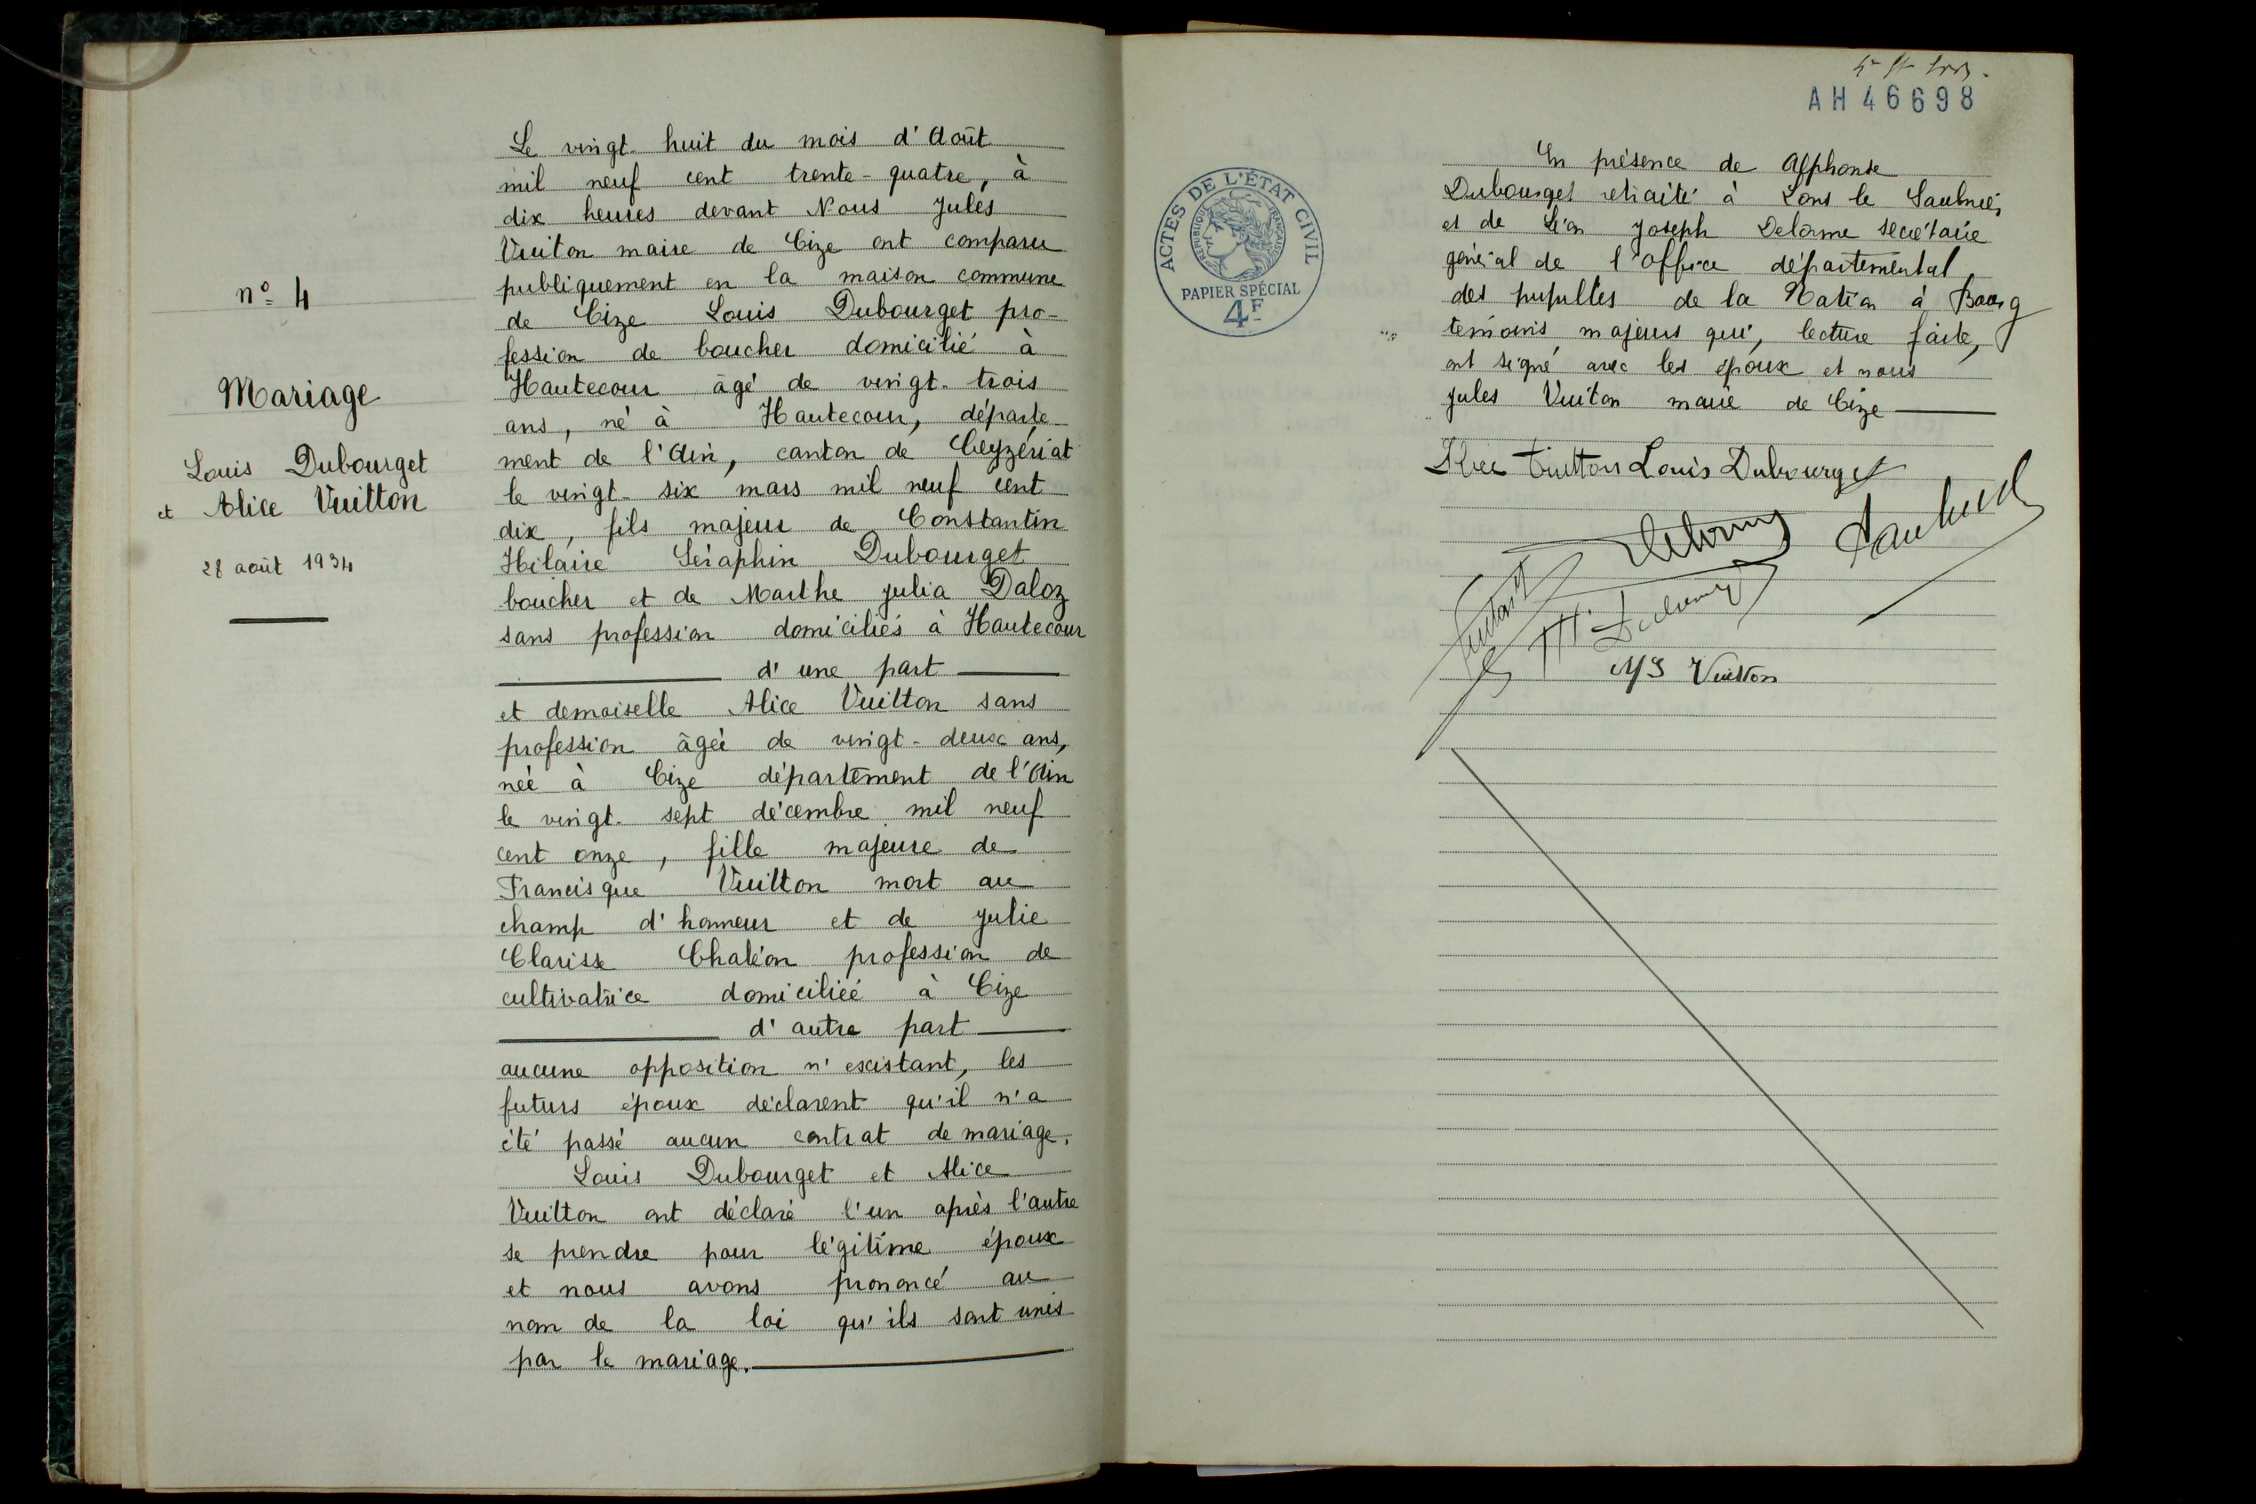 n° 4
Mariage
Louis Dubourget
et Alice Vuitton
28 août 1934
Le vingt-huit du mois d'Août
mil neuf cent trente-quatre, à
dix heures devant Nous Jules
Vuiton maire de Cize ont comparu
publiquement en la maison commune
de Cize Louis Dubourget pro-
fession de boucher domicilié à
Hautecour âgé de vingt-trois
ans, né à Hautecour, départe-
ment de l'Ain, canton de Ceyzériat
le vingt-six mars mil neuf cent
dix, fils majeur de Constantin
Hilaire Séraphin Dubourget
boucher et de Marthe Julia Daloz
sans profession domiciliés à Hautecour
d'une part
et demoiselle Alice Vuitton sans
profession âgée de vingt-deux ans,
née à Cize département de l'Ain
le vingt-sept décembre mil neuf
cent onze, fille majeure de
Francisque Vuitton mort au
champ d'honneur et de Julie
Clarisse Chaléon profession de
cultivatrice domiciliée à Cize
d'autre part
aucune opposition n'existant, les
futurs époux déclarent qu'il n'a
été passé aucun contrat de mariage.
Louis Dubourget et Alice
Vuitton ont déclaré l'un après l'autre
se prendre pour légitime époux
et nous avons prononcé au
nom de la loi qu'ils sont unis
par le mariage.
AH 46698
ACTES DE L'ÉTAT CIVIL
RÉPUBLIQUE FRANÇAISE
PAPIER SPÉCIAL
4F
En présence de Alphonse
Dubourget retraité à Lons le Saulnier,
et de Léon Joseph Delorme secrétaire
général de l'office départemental
des pupilles de la Nation à Bourg
témoins majeurs qui, lecture faite,
ont signé avec les époux et nous
Jules Vuiton maire de Cize
Vuitton Louis Dubourget
Delorme
MJ Vuitton